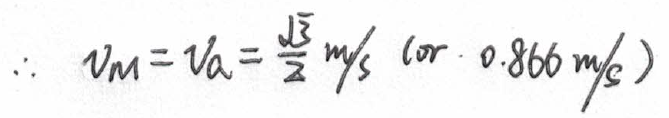 ∴ v_M = v_a = √3/2 m/s (or 0.866 m/s)